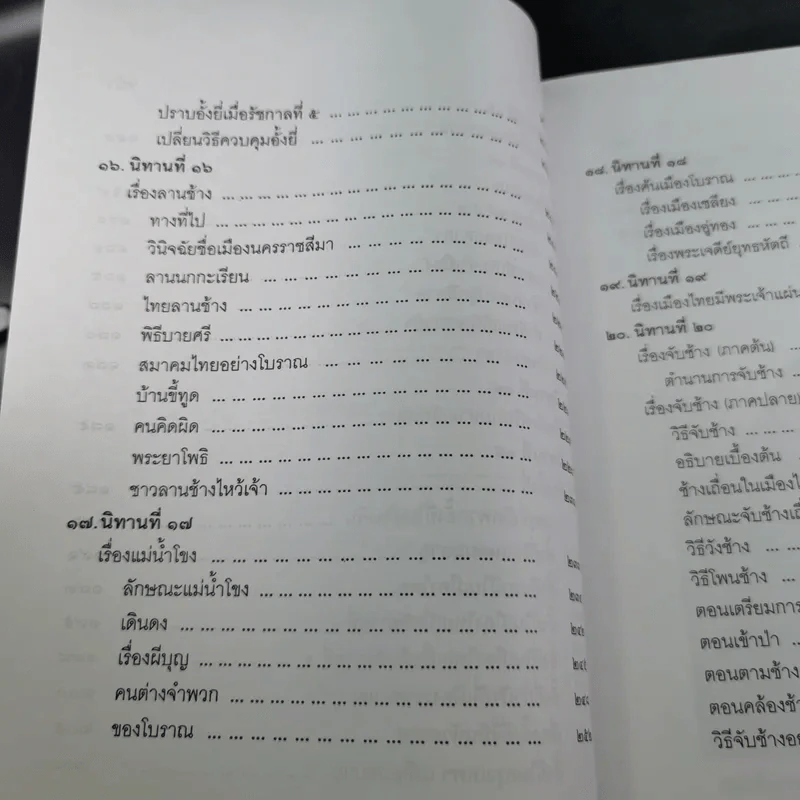 ปราบอั้งยี่เมื่อรัชกาลที่ ๕ ... ... ... ... ... ... ... ... ...
เปลี่ยนวิธีควบคุมอั้งยี่ ... ... ... ... ... ... ... ... ...
๑๖. นิทานที่ ๑๖
เรื่องลานช้าง ... ... ... ... ... ... ... ... ... ... ...
ทางที่ไป ... ... ... ... ... ... ... ... ... ... ...
วินิจฉัยชื่อเมืองนครราชสีมา ... ... ... ... ... ... ... ...
ลานนกกะเรียน ... ... ... ... ... ... ... ... ... ...
ไทยลานช้าง ... ... ... ... ... ... ... ... ... ...
พิธีบายศรี ... ... ... ... ... ... ... ... ... ... ...
สมาคมไทยอย่างโบราณ ... ... ... ... ... ... ... ...
บ้านขี้ทูด ... ... ... ... ... ... ... ... ... ... ...
คนคิดผิด ... ... ... ... ... ... ... ... ... ... ...
พระยาโพธิ ... ... ... ... ... ... ... ... ... ... ...
ชาวลานช้างไหว้เจ้า ... ... ... ... ... ... ... ... ...
๑๗. นิทานที่ ๑๗
เรื่องแม่น้ำโขง ... ... ... ... ... ... ... ... ... ... ...
ลักษณะแม่น้ำโขง ... ... ... ... ... ... ... ... ... ...
เดินดง ... ... ... ... ... ... ... ... ... ... ... ...
เรื่องผีบุญ ... ... ... ... ... ... ... ... ... ... ...
คนต่างจำพวก ... ... ... ... ... ... ... ... ... ...
ของโบราณ ... ... ... ... ... ... ... ... ... ... ...
๑๘. นิทานที่ ๑๘
เรื่องค้นเมืองโบราณ ... ... ... ...
เรื่องเมืองเชลียง ... ... ... ...
เรื่องเมืองอู่ทอง ... ... ... ...
เรื่องพระเจดีย์ยุทธหัตถี
๑๙. นิทานที่ ๑๙
เรื่องเมืองไทยมีพระเจ้าแผ่น
๒๐. นิทานที่ ๒๐
เรื่องจับช้าง (ภาคต้น) ...
ตำนานการจับช้าง ...
เรื่องจับช้าง (ภาคปลาย)
วิธีจับช้าง ... ... ...
อธิบายเบื้องต้น ...
ช้างเถื่อนในเมืองไ
ลักษณะจับช้างเถื่
วิธีวังช้าง ... ...
วิธีโพนช้าง ... ...
ตอนเตรียมการ
ตอนเข้าป่า ...
ตอนตามช้าง
ตอนคล้องช้า
วิธีจับช้างอย